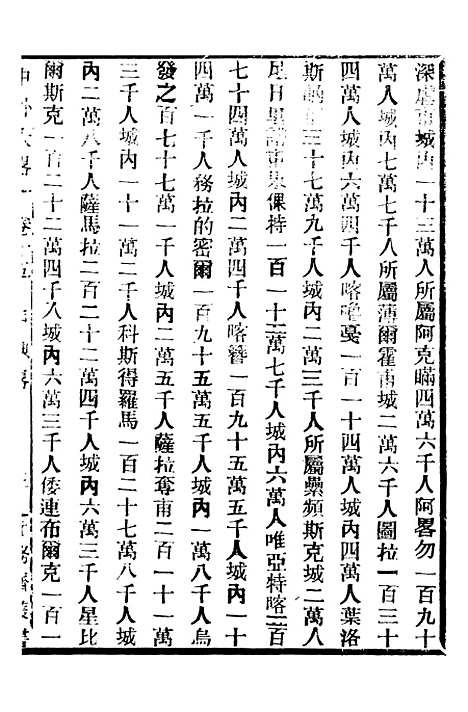 深虐甫城內一十三萬人所屬阿克瞞四萬六千人阿畧勿一百九十
萬人城內七萬七千人所屬薄爾霍甫城二萬六千人圖拉一百三十
四萬人城內六萬四千人喀嚕戛一百一十四萬人城內四萬人葉洛
斯 三十七萬九千人城內二萬三千人所屬 頻斯克城二萬八
 保持一百一十二萬七千人城內六萬人唯亞特喀二百
七十四萬人城內二萬四千人喀簪一百九十五萬五千人城內一十
四萬一千人務拉的密爾一百九十五萬人城內一萬八千人烏
發之百七十七萬一千人城內二萬五千人薩拉奪甫二百一十一萬
三千人城內一十一萬二千人科斯得羅馬一百二十七萬八千人城
內二萬八千人薩馬拉二百二十二萬四千人城內六萬三千人星比
爾斯克一百二十二萬四千人城內六萬三千人倭連布爾克一百一